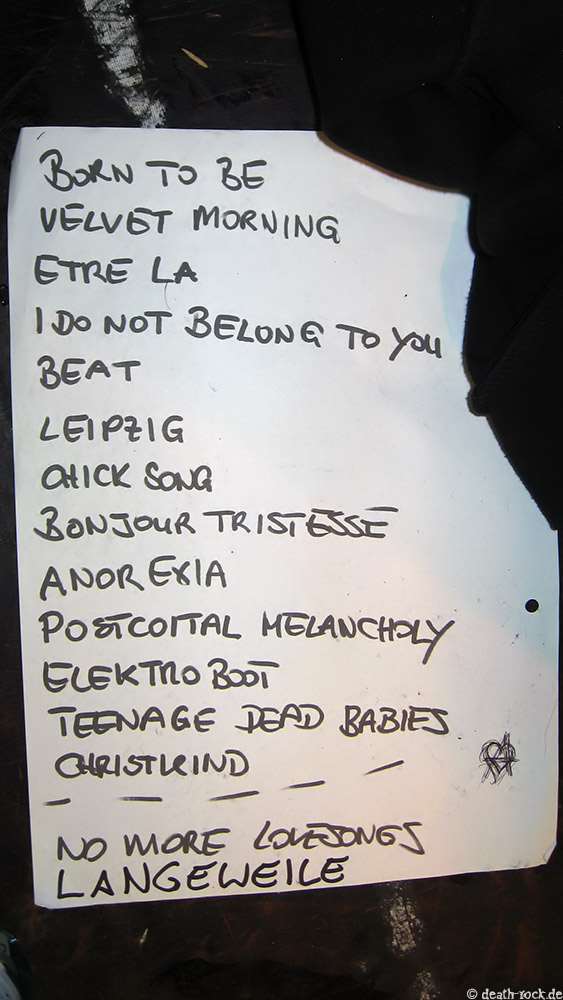 BORN TO BE
VELVET MORNING
ETRE LA
I DO NOT BELONG TO YOU
BEAT
LEIPZIG
CHICK SONG
BONJOUR TRISTESSE
ANOREXIA
POSTCOITAL MELANCHOLY
ELEKTRO BOOT
TEENAGE DEAD BABIES
CHRISTKIND
NO MORE LOVESONGS
LANGEWEILE
© death-rock.de